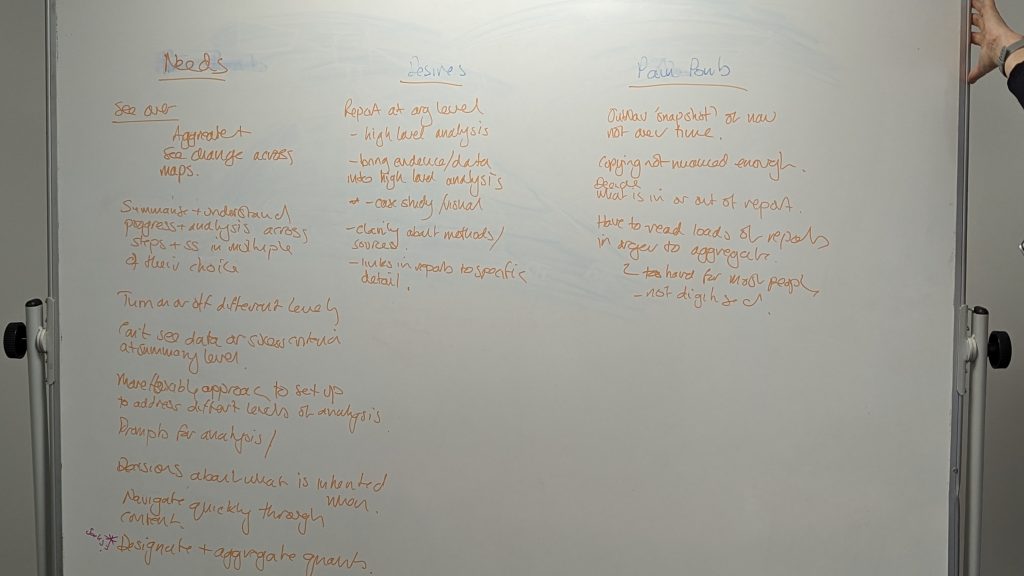 Needs
See over
Aggregate +
See change across
maps.
Summarise + understand
progress + analysis across
steps + ss in multiple
of their choice
Turn on or off different levels
Can't see data or success criteria
at summary level.
More flexible approach to set up
to address different levels of analysis.
Prompts for analysis/
Decisions about what is inherited
when.
Navigate quickly through
content.
* Designate + aggregate quants.
Desires
Report at org level
- high level analysis
- bring evidence/data
into high level analysis
* - case study /visual
- clarity about methods/
sources.
- links in reports to specific
detail.
Pain Points
Outnav 'snapshot' of now
not over time.
Copying not nuanced enough.
Decide
what is in or out of report.
Have to read loads of reports
in order to aggregate.
too hard for most people
- not digitised.